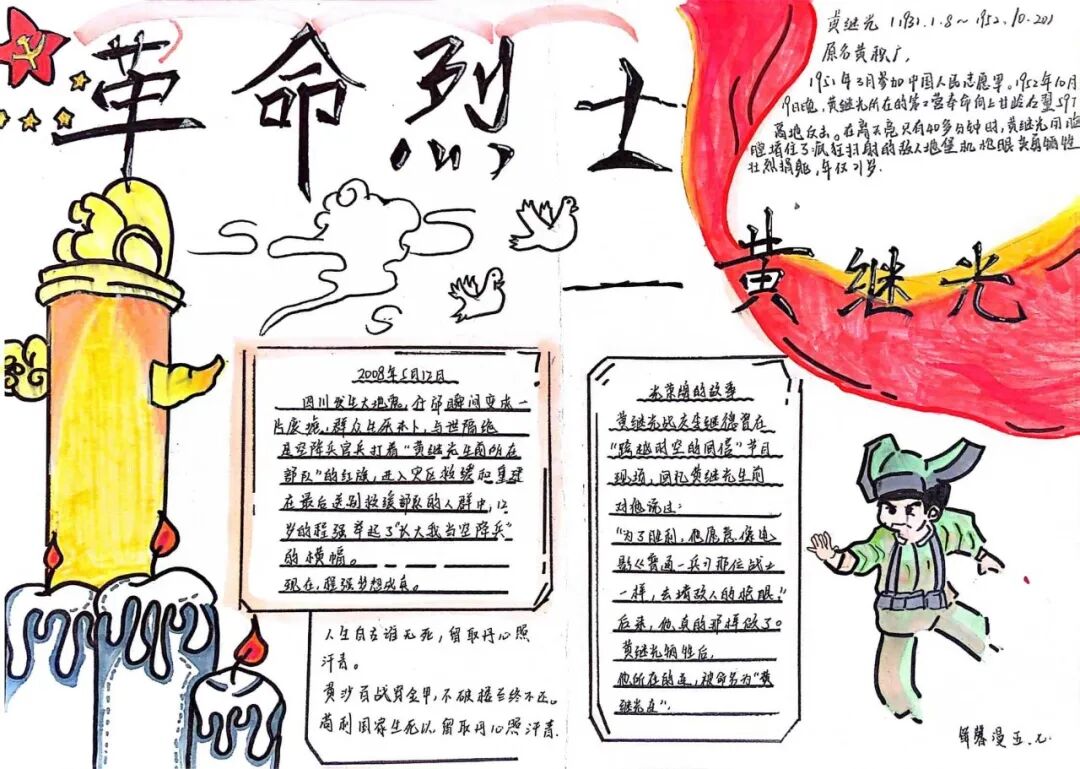 革命烈士
—黄继光
黄继光（1931.1.8～1952.10.20）
原名黄积广，
1951年3月参加中国人民志愿军。1952年10月
19日晚，黄继光所在的第二营奉命向上甘岭右翼597
高地反击。在离天亮只有40多分钟时，黄继光用胸
膛堵住了疯狂扫射的敌人地堡机枪眼英勇牺牲
壮烈捐躯，年仅21岁。
2008年5月12日
四川发生大地震，汶川瞬间变成一
片废墟，群众生死未卜，与世隔绝
是空降兵官兵打着“黄继光生前所在
部队”的红旗，进入灾区救援和重建
在最后送别救援部队的人群中，12
岁的程强举起了“长大我当空降兵”
的横幅。
现在，程强梦想成真。
人生自古谁无死，留取丹心照
汗青。
黄沙百战穿金甲，不破楼兰终不还。
苟利国家生死以，留取丹心照汗青.
光荣馆的故事
黄继光战友李继德曾在
“跨越时空的回信”节目
现场，回忆黄继光生前
对他说过：
“为了胜利，他愿意像电
影《普通一兵》那位战士
一样，去堵敌人的枪眼。”
后来，他真的那样做了。
黄继光牺牲后，
他所在的连，被命名为“黄
继光连”.
馨漫 五.